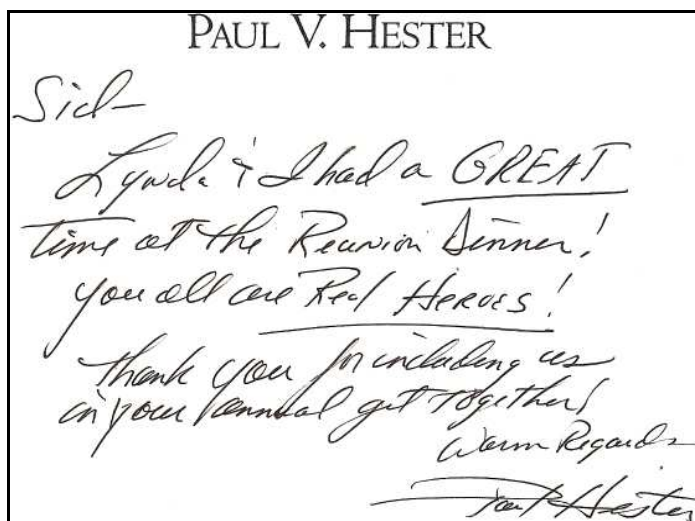 PAUL V. HESTER
Sid-
Lynda & I had a GREAT
time at the Reunion Dinner!
you all are Real HEROES!
Thank you for including us
in your annual get together!
Warm Regards
Paul Hester